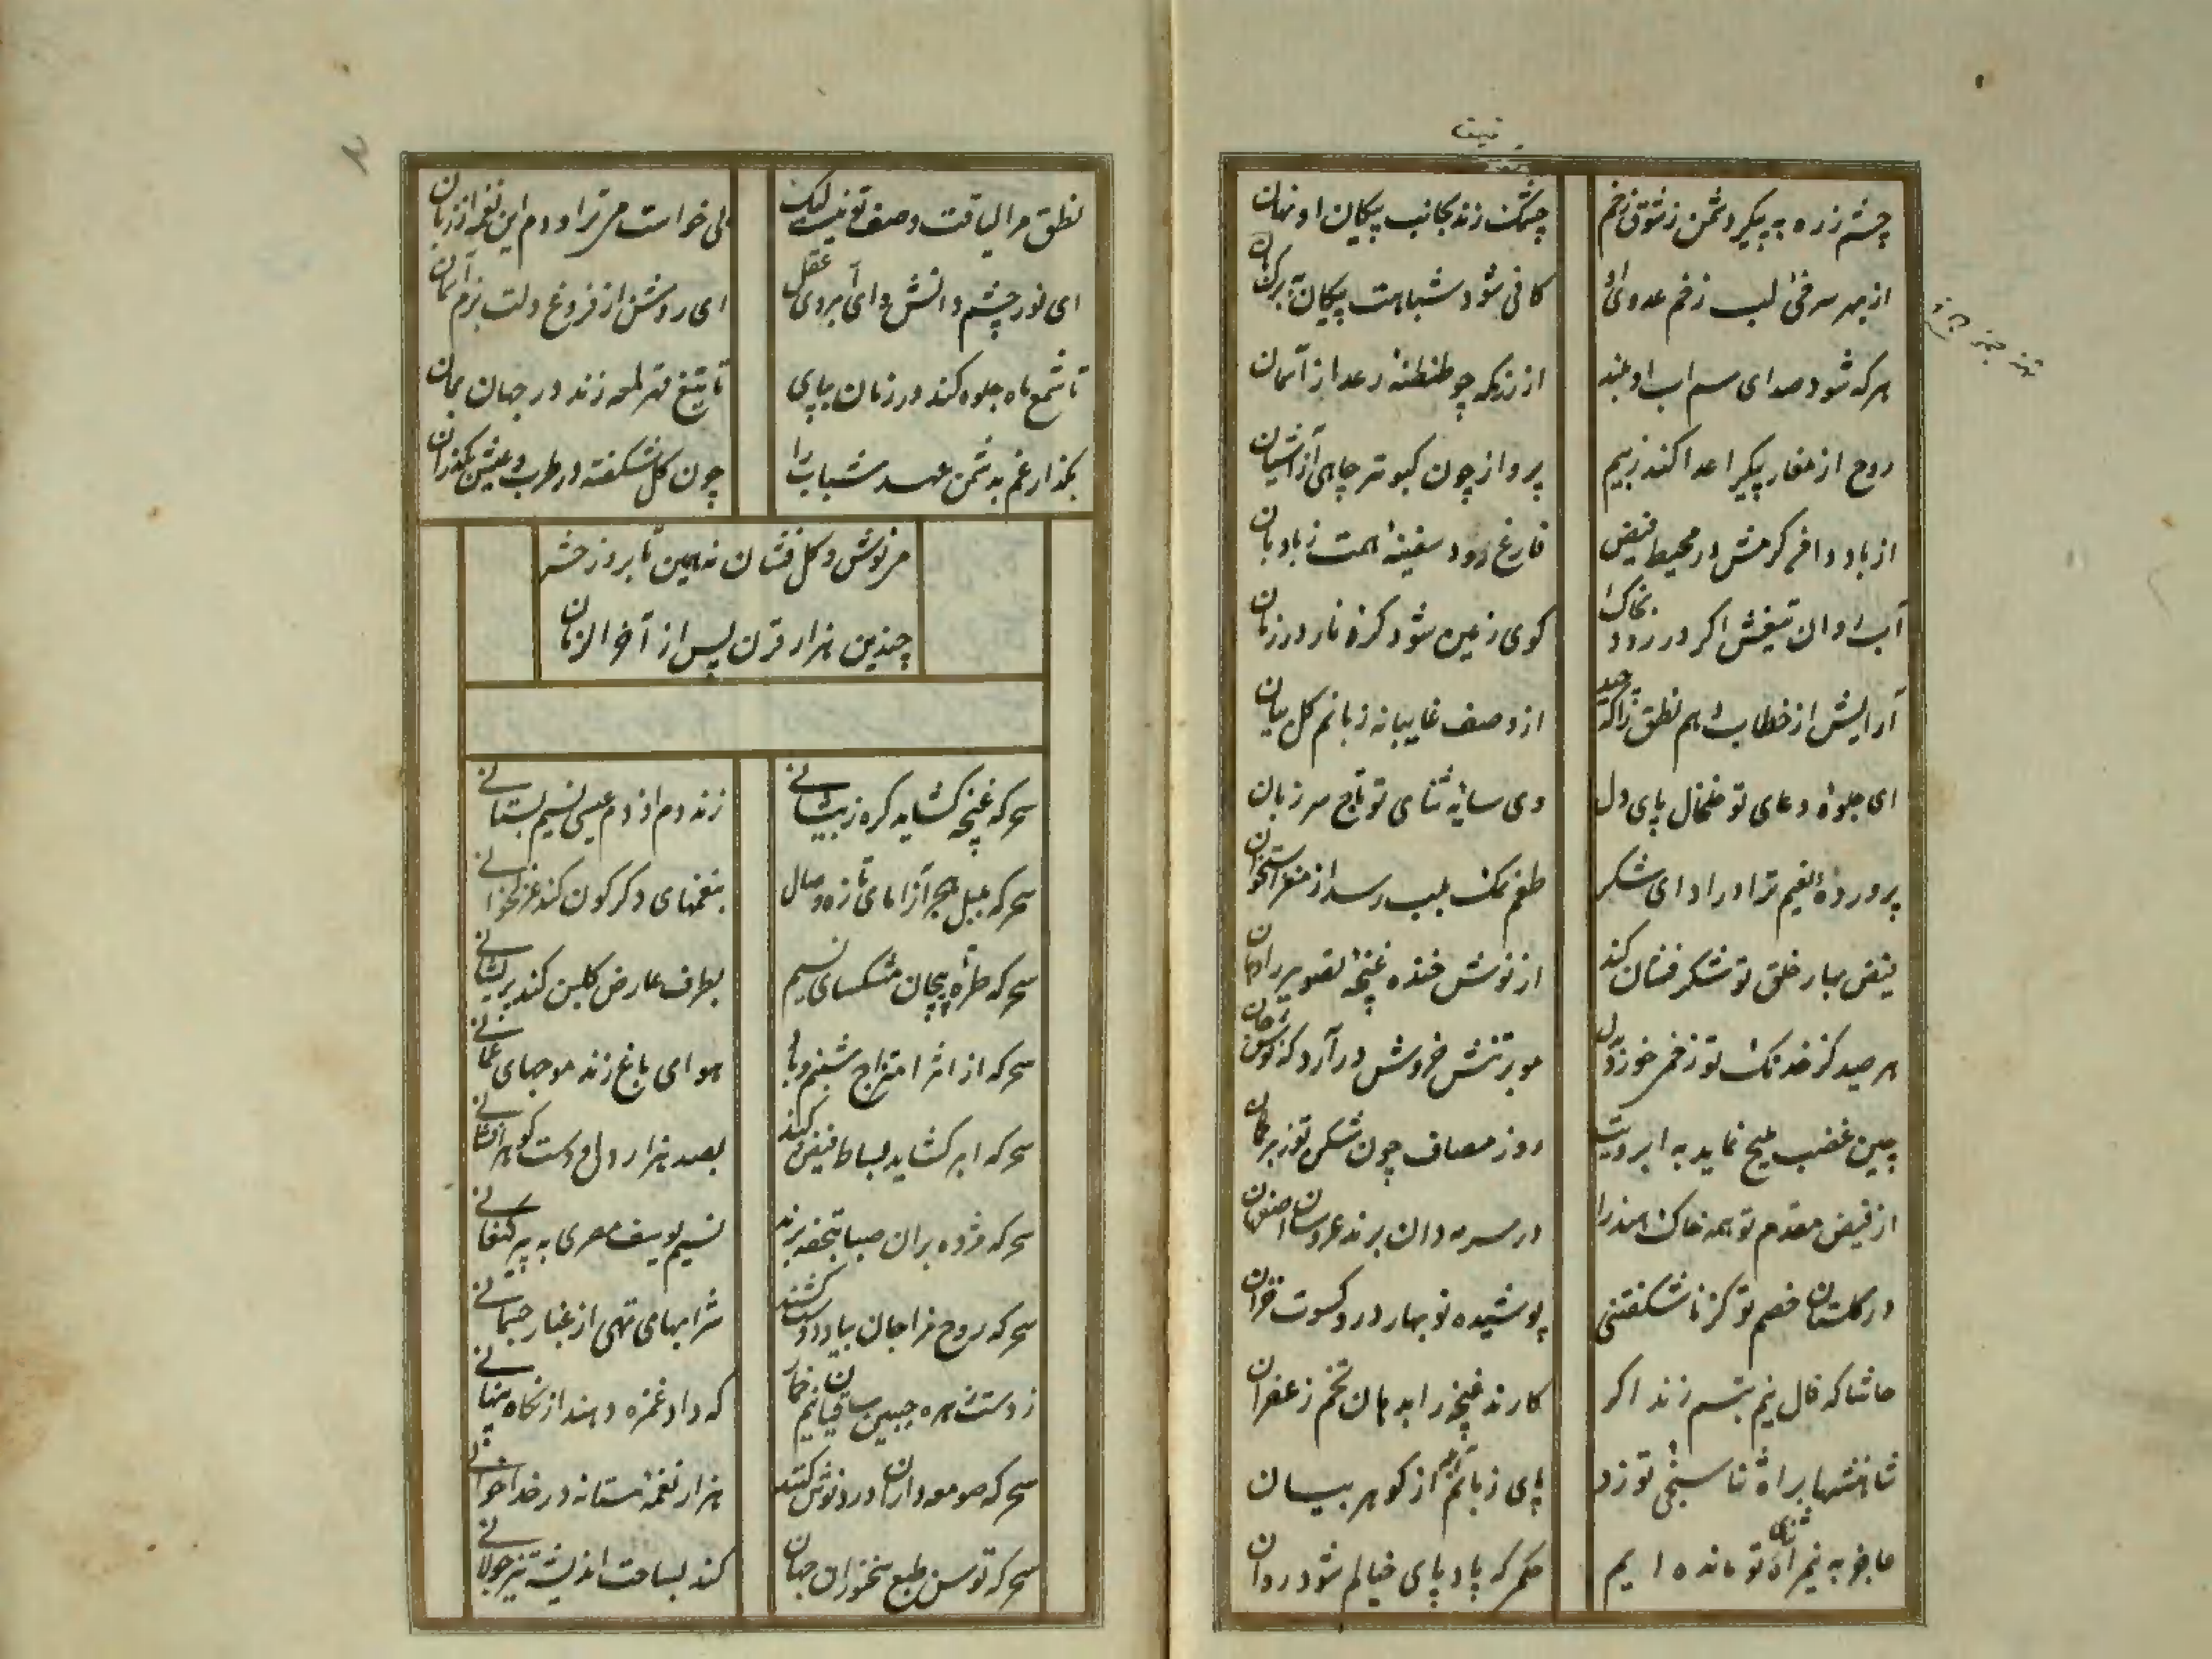 چشم زره به پیکر دشمن ز شوق زخم
چشمک زند بجانب پیکان او نهان
از بهر سرخی لب زخم عدوی او
کافی شود شباهت پیکان ببرک پان
هر که شود صدای سم اسب او بلند
از رزمکه چو طنطنهٔ رعد از آسمان
روح از مغار پیکر اعدا کند ز بیم
پرواز چون کبوتر چاهی از آشیان
از باد وافر کرمش در محیط فیض
فارغ رود سفینهٔ همت ز بادبان
آب روان تیغش اکر در رود بخاک
کوی زمین شود کرهٔ نار در زمان
آرایش از خطاب دهم نطق را که چند
از وصف غایبانه زبانم کل بیان
ای جلوهٔ دعای تو خلخال پای دل
وی سایهٔ ثنای تو تاج سر زبان
پروردهٔ نعیم ترا در ادای شکر
طعم نمک بلب رسد از مغز استخوان
فیض بهار خلق تو شکر فشان کند
از نوش خنده غنچهٔ تصویر را دهان
هر صید کز خدنک تو زخمی خورد بدل
مو بر تنش خروش در آرد که نوش جان
چین غضب ملیح نماید به ابرویت
روز مصاف چون شکن توز بر کمان
از فیض مقدم تو همه خاک هند را
در سرمه دان برند عروسان اصفهان
در کلستان خصم تو کز ناشکفتنی
پوشیده نوبهار در و کسوت خزان
حاشا که فال نیم تبسم زند اکر
کارند غنچه را بدهان تخم زعفران
شاهنشها براه ثنا سنجی تو زد
پای زبانم آبله از کوهر بیان
عاجز به نیم راه ثنای تو مانده ایم
حکم که باد پای خیالم شود روان
نطق مرا لیاقت وصف تو نیست لیک
می خواست می تراود م این نغمه از زبان
ای نور چشم دانش و ای آبروی عقل
ای روشن از فروغ دلت بزم آسمان
تا شمع ماه جلوه کند در زمان بپای
تا تیغ مهر لمعه زند در جهان بمان
بکذار غم بدشمن و عهد شباب را
چون کل شکفته در طرب و عیش بکذران
می نوش و کل فشان نه همین تا بروز حشر
چندین هزار قرن پس از آخر الزمان
سحر که غنچه کشاید کره ز پیشانی
زند دم از دم عیسی نسیم بستانی
سحر که بلبل هجر آزمای تازه وصال
بنغمهای دکرکون کند غزلخوانی
سحر که طرهٔ پیچان مشکسای نسیم
بطرف عارض کلبن کند پریشانی
سحر که از اثر امتزاج شبنم و باد
هوای باغ زند موجهای عمانی
سحر که ابر کشاید بساط فیض کند
بصد هزار دل و دست کوهر افشانی
سحر که مژده بران صبا بتحفه برند
نسیم یوسف مصری به پیر کنعانی
سحر که روح مزاجان بیاد دوست کشند
شرابهای تهی از غبار جسمانی
ز دست زهره جبین ساقیان نیم خمار
که داد غمزه دهند از نکاه پنهانی
سحر که صومعه داران درد نوش کنند
هزار نغمهٔ مستانه در خداخوانی
سحر که توسن طبع سخنوران جهان
کند بساحت اندیشه تیز جولانی